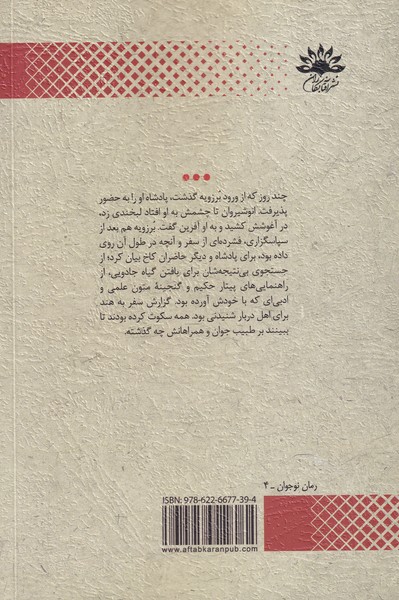 نشر آفتابکاران
چند روز که از ورود بُرزویه گذشت، پادشاه او را به حضور
پذیرفت. انوشیروان تا چشمش به او افتاد لبخندی زد،
در آغوشش کشید و به او آفرین گفت. بُرزویه هم بعد از
سپاسگزاری، فشرده‌ای از سفر و آنچه در طول آن روی
داده بود، برای پادشاه و دیگر حاضران کاخ بیان کرد؛ از
جستجوی بی‌نتیجه‌شان برای یافتن گیاه جادویی، از
راهنمایی‌های پیتار حکیم و گنجینهٔ متون علمی و
ادبی‌ای که با خودش آورده بود. گزارش سفر به هند
برای اهل دربار شنیدنی بود. همه سکوت کرده بودند تا
ببینند بر طبیب جوان و همراهانش چه گذشته.
رمان نوجوان ـ ۴
ISBN: 978-622-6677-39-4
www.aftabkaranpub.com